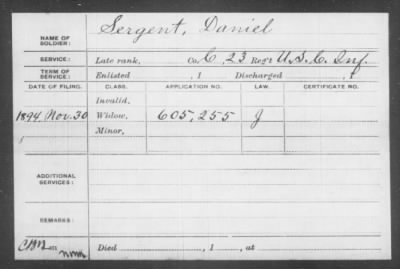 NAME OF SOLDIER: Sergent, Daniel
SERVICE: Late rank, Co. C, 23 Reg't U.S.C. Inf.
TERM OF SERVICE: Enlisted , 1 Discharged , 1
DATE OF FILING. CLASS. APPLICATION NO. LAW. CERTIFICATE NO.
Invalid,
1894, Nov. 30 Widow, 605,255 J
Minor,
ADDITIONAL SERVICES:
REMARKS:
Died , 1 , at